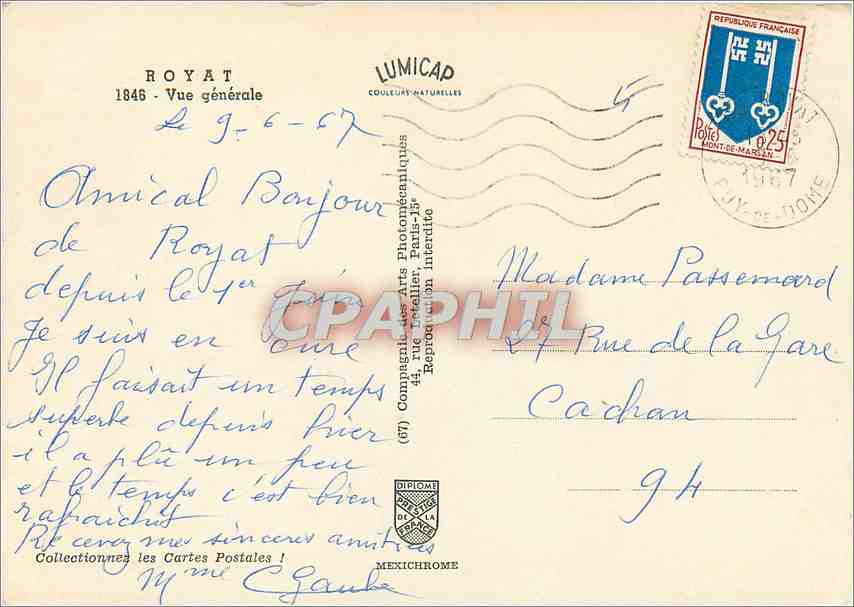 ROYAT
1846 - Vue générale
Le 9-6-67
Amical Bonjour
de Royat
depuis le 1er juin
Je suis en cure
Il faisait un temps
superbe depuis hier
il a plû un peu
et le temps c'est bien
rafraichit
Recevez mes sinceres amitiées
Collectionnez les Cartes Postales !
Mme
LUMICAP
COULEURS NATURELLES
(67) Compagnie des Arts Photomécaniques
44, rue Letellier, Paris-15e
Reproduction interdite
DIPLOME
PRESTIGE
DE LA
FRANCE
MEXICHROME
REPUBLIQUE FRANÇAISE
Postes
0,25
MONT-DE-MARSAN
ROYAT
1967
PUY-DE-DOME
Madame Passemard
27 Rue de la Gare
Cachan
94
CPAPHIL